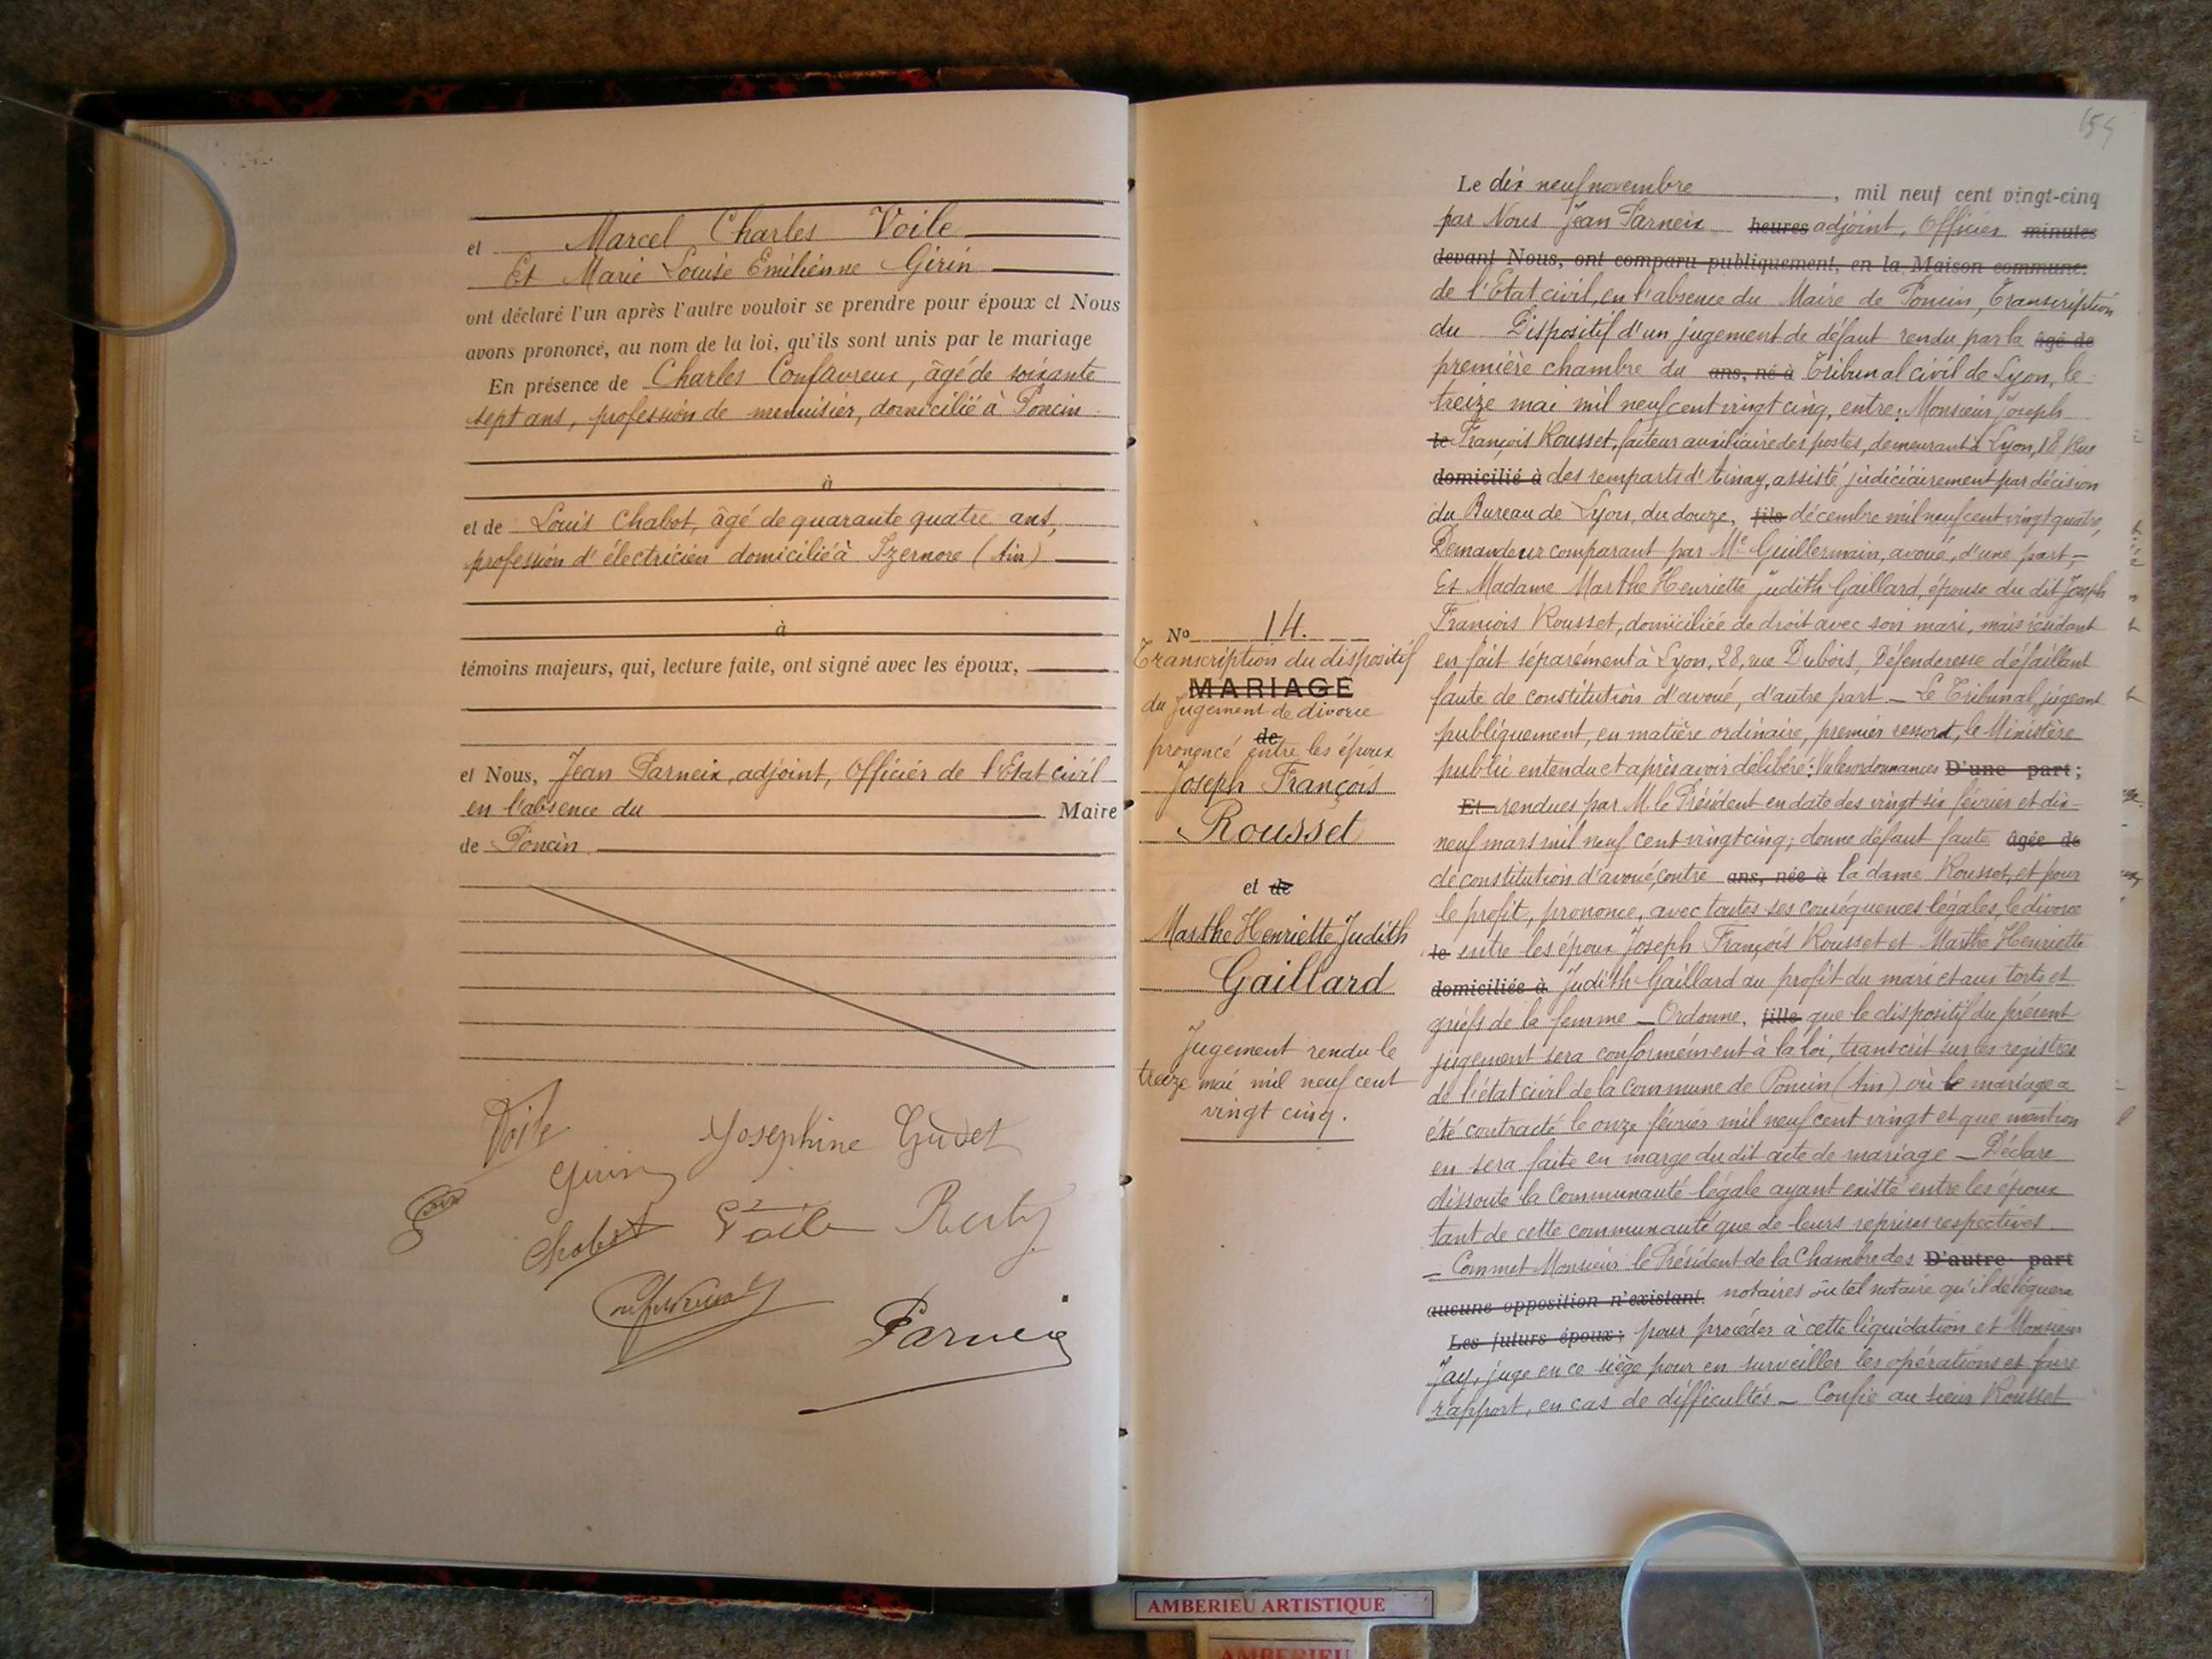 et Marcel Charles Voile
Et Marie Louise Emilienne Girin
ont déclaré l'un après l'autre vouloir se prendre pour époux et Nous
avons prononcé, au nom de la loi, qu'ils sont unis par le mariage
En présence de Charles Confavreux, âgé de soixante
sept ans, profession de menuisier, domicilié à Poncin
à
et de Louis Chabot, âgé de quarante quatre ans,
profession d'électricien domicilié à Izernore (Ain)
à
témoins majeurs, qui, lecture faite, ont signé avec les époux,
et Nous, Jean Parneix, adjoint, Officier de l'Etat civil
en l'absence du Maire
de Poncin
Voile
Josephine Gudet
Girin
Chabot Voile
Parneix
154
No 14.
Transcription du dispositif
MARIAGE
du jugement de divorce
de
prononcé entre les époux
Joseph François
Rousset
et de
Marthe Henriette Judith
Gaillard
Jugement rendu le
treize mai mil neuf cent
vingt cinq.
Le dix neuf novembre, mil neuf cent vingt-cinq
par Nous Jean Parneix heures adjoint, Officier minutes
devant Nous, ont comparu publiquement, en la Maison commune:
de l'Etat civil, en l'absence du Maire de Poncin, Transcription
du Dispositif d'un jugement de défaut rendu par la âgé de
première chambre du ans, né à Tribunal civil de Lyon, le
treize mai mil neuf cent vingt cinq, entre: Monsieur Joseph
le François Rousset, facteur auxiliaire des postes, demeurant à Lyon, 18, Rue
domicilié à des remparts d'Ainay, assisté judiciairement par décision
du Bureau de Lyon, du douze, fils décembre mil neuf cent vingt quatre,
Demandeur comparant par Me Guillermain, avoué, d'une part,-
Et Madame Marthe Henriette Judith Gaillard, épouse du dit Joseph
François Rousset, domiciliée de droit avec son mari, mais résidant
en fait séparément à Lyon, 28, rue Dubois, Défenderesse défaillant
faute de constitution d'avoué, d'autre part - Le Tribunal, jugeant
publiquement, en matière ordinaire, premier ressort, le Ministère
public entendu et après avoir délibéré: Vu les ordonnances D'une part;
Et rendues par M. le Président en date des vingt six février et dix-
neuf mars mil neuf cent vingt cinq; donne défaut faute âgée de
de constitution d'avoué, contre ans, née à la dame Rousset, et pour
le profit, prononce, avec toutes ses conséquences légales, le divorce
le entre les époux Joseph François Rousset et Marthe Henriette
domiciliée à Judith Gaillard au profit du mari et aux torts et
griefs de la femme - Ordonne, fille que le dispositif du présent
jugement sera conformément à la loi, transcrit sur les registres
de l'état civil de la commune de Poncin (Ain) où le mariage a
été contracté le onze février mil neuf cent vingt et que mention
en sera faite en marge du dit acte de mariage - Déclare
dissoute la Communauté légale ayant existé entre les époux
tant de cette communauté que de leurs reprises respectives.
- Commet Monsieur le Président de la Chambre des D'autre part
aucune opposition n'existant. notaires ou tel notaire qu'il déléguera
Les futurs époux: pour procéder à cette liquidation et Monsieur
Jay, juge en ce siège pour en surveiller les opérations et faire
rapport, en cas de difficultés - Confie au sieur Rousset
AMBERIEU ARTISTIQUE
AMBERIEU